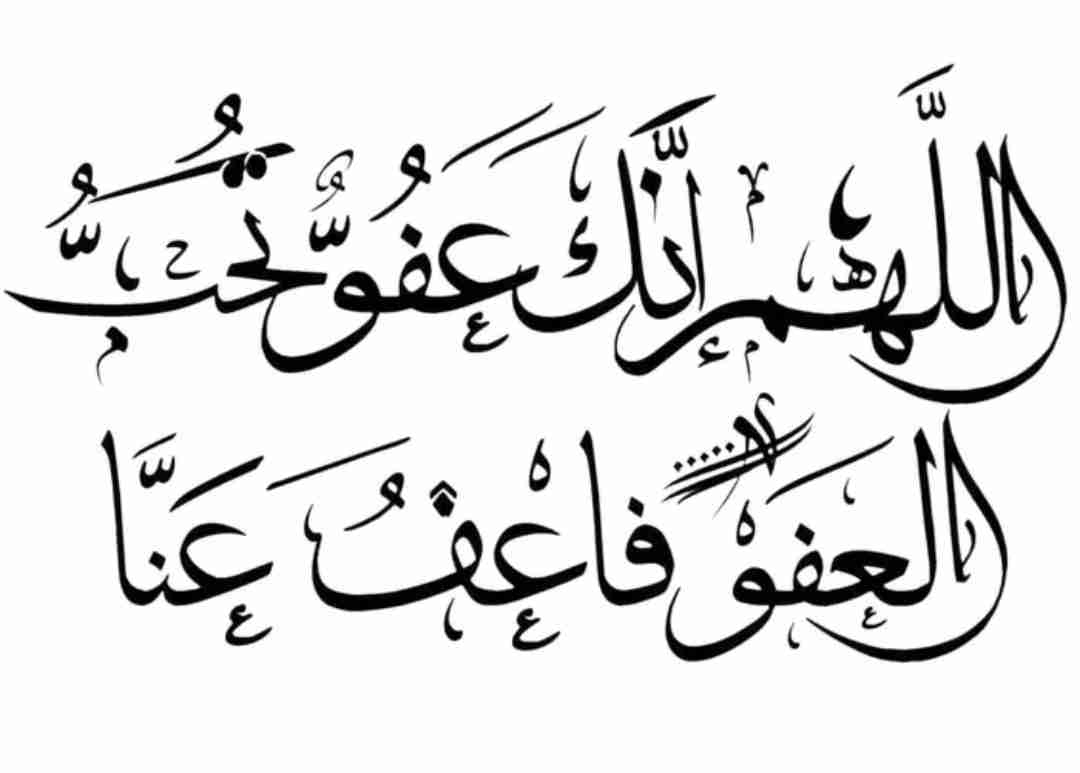 اللَّهُمَّ إنَّكَ عَفُوٌّ تُحِبُّ
العَفْوَ فَاعْفُ عَنَّا